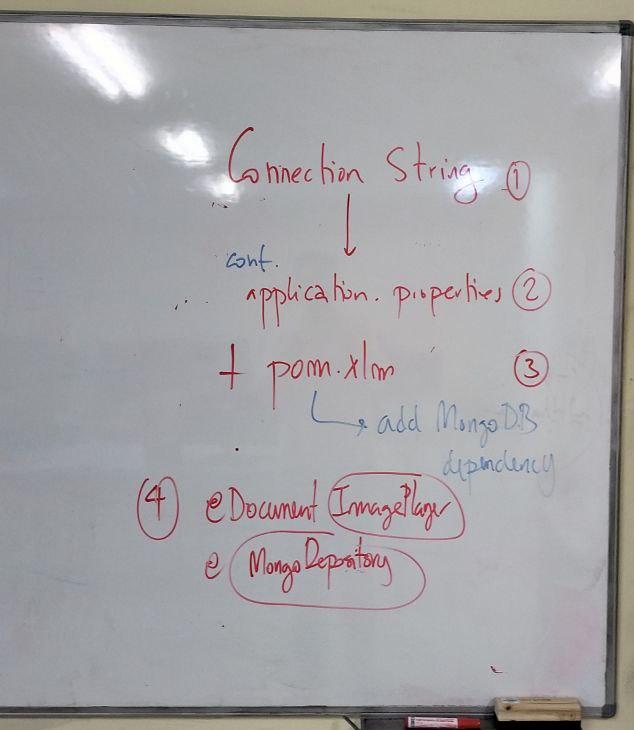 Connection String 1
cont.
application.properties 2
+ pom.xlm 3
add MongoDB
dependency
4 @Document ImagePlayer
@ MongoDepository